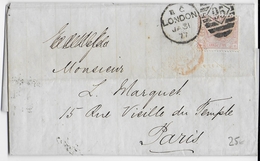 E.C
LONDON
JA 31
77
95
Monsieur
L Marquet
15 Rue Vieille du Temple
Paris
25-